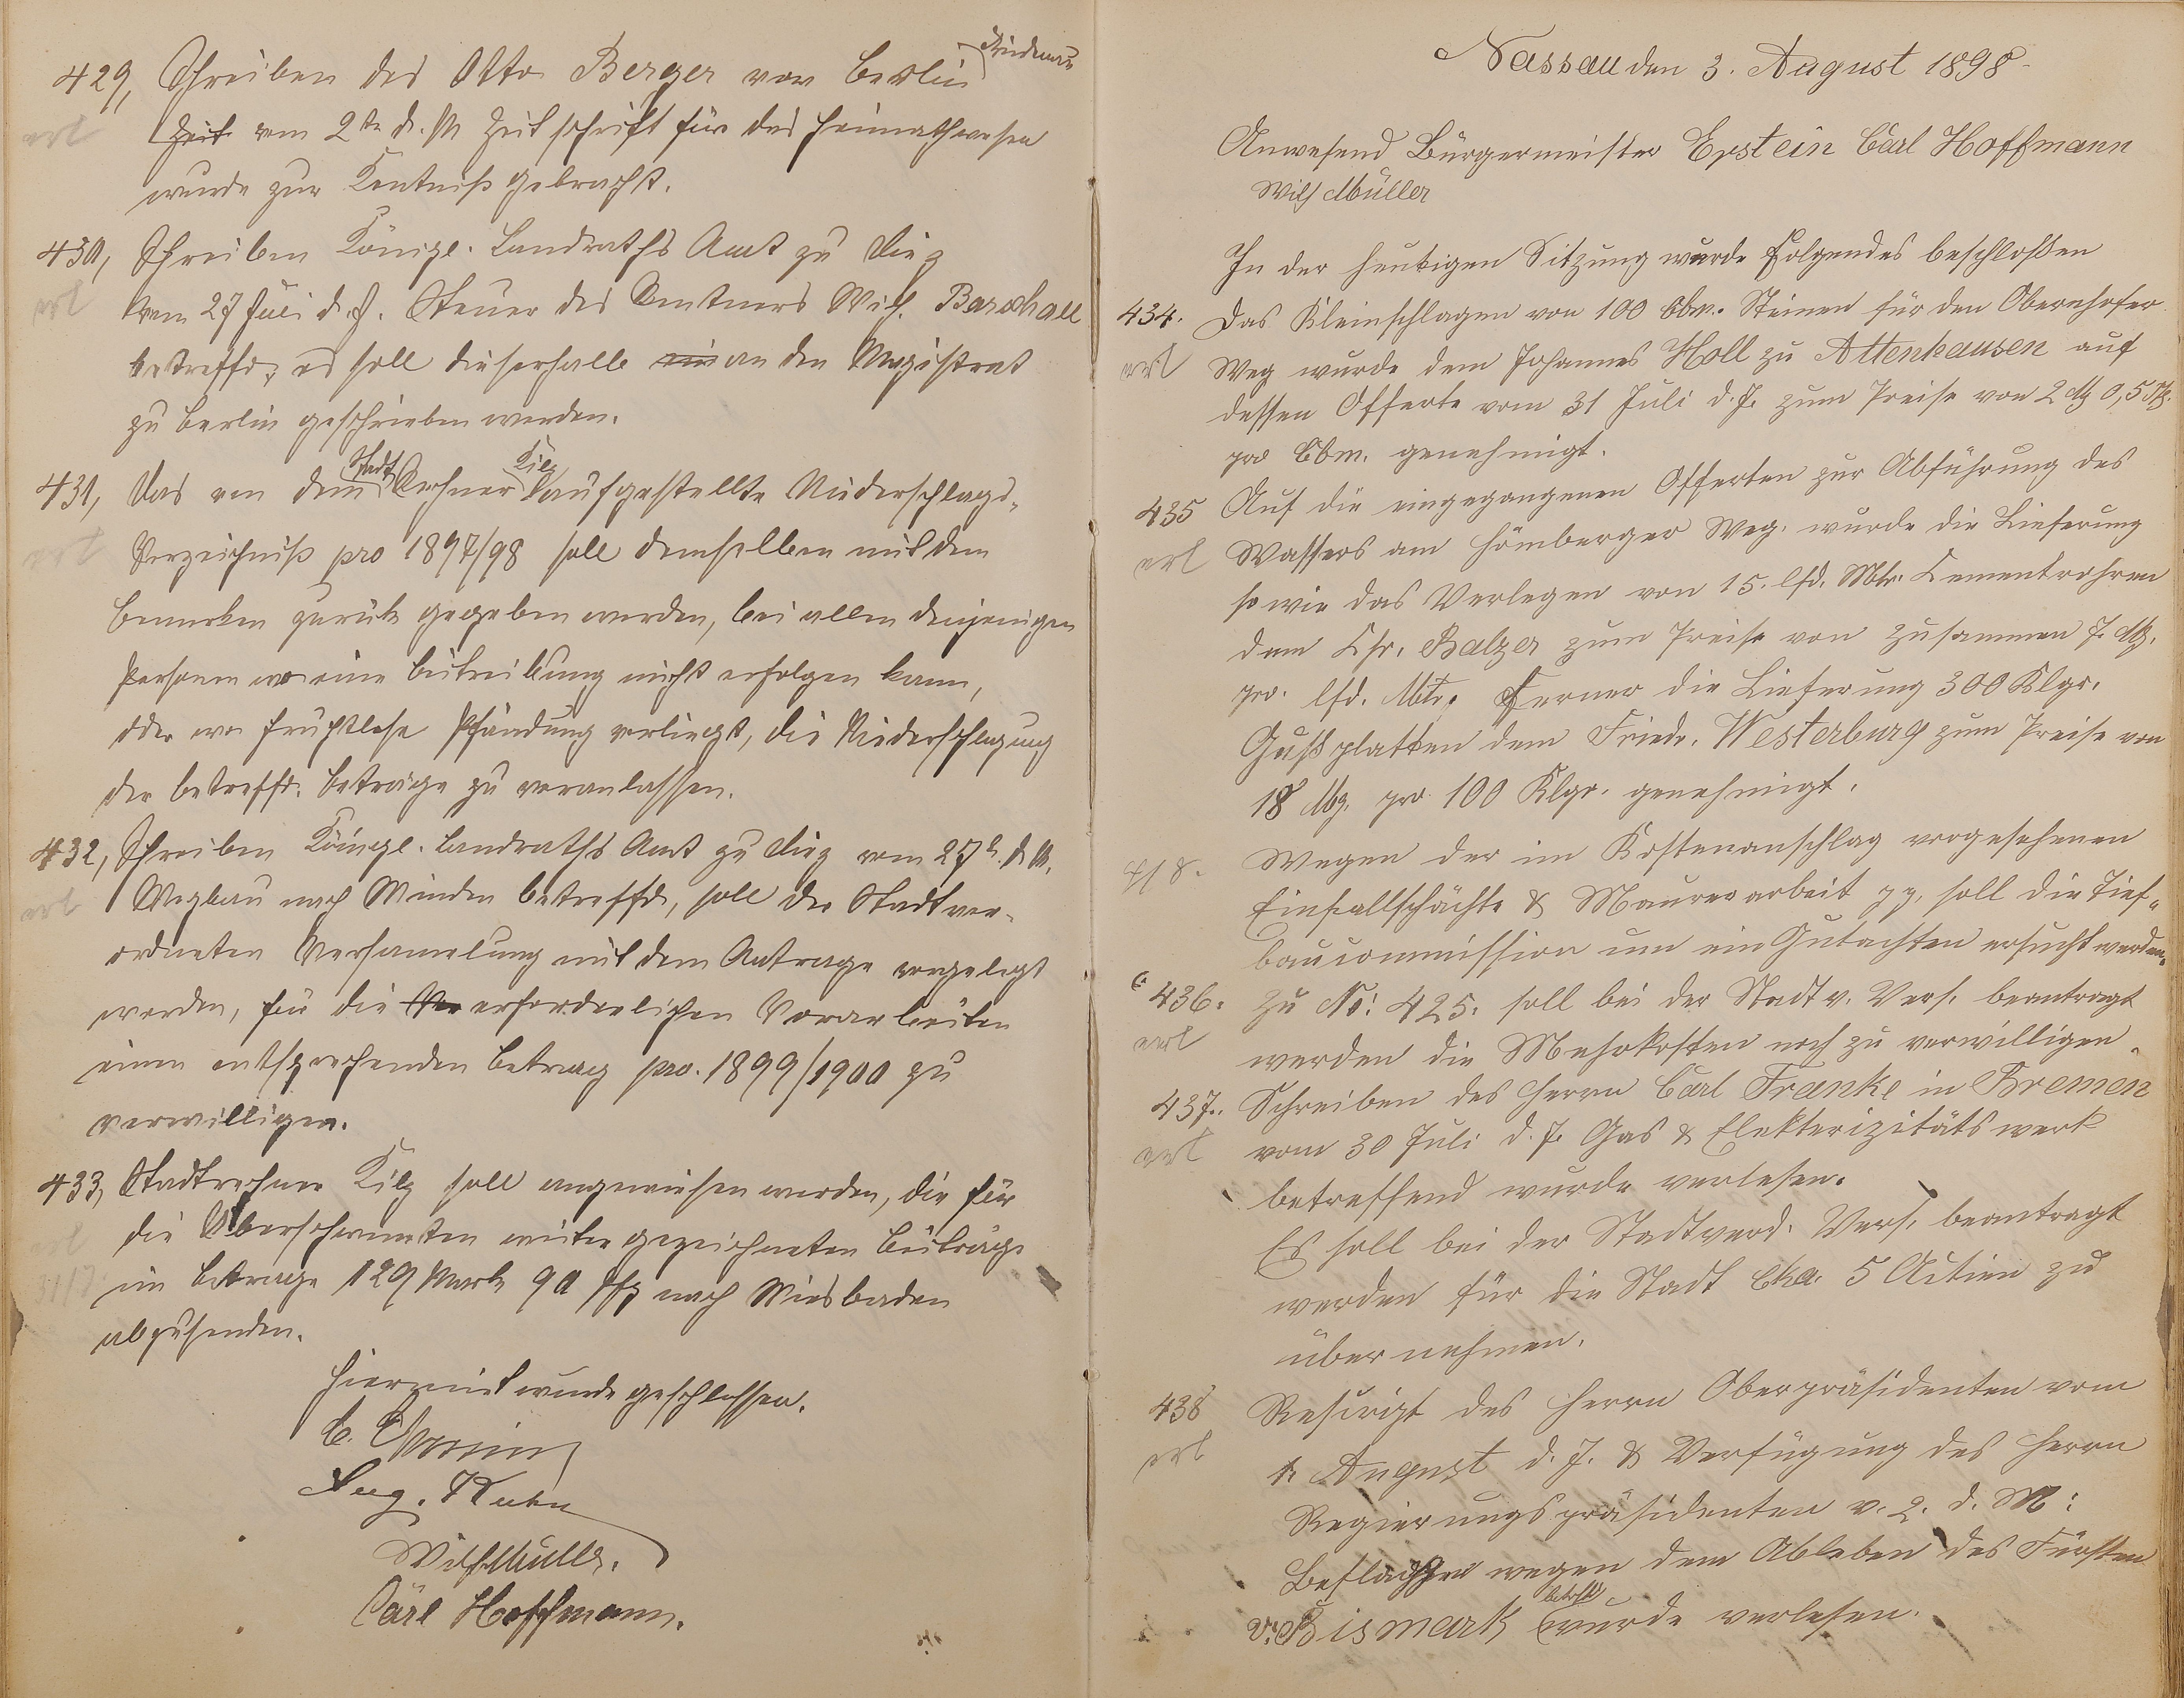 429, Schreiben des Otto Berger von Berlin Friedenau
erl
Zeit vom 2ten d. M Zeitschrift für das Heimathwesen
wurde zur Kentniß gebracht.
430, Schreiben Königl. Landraths Amt zu Diez
erl
vom 27 Juli d. J. Steuer des Rentners Wilh. Barschall
betreffd; es soll dieserhalb ein an den Magistrat
zu Berlin geschrieben werden.
431, Das von dem Stadt Rechner Kilz aufgestellte Niederschlags-
erl
Verzeichniß pro 1897/98 soll demselben mit dem
Bemerken zurück gegeben werden, bei allen denjenigen
Personen wo eine Beitreibung nicht erfolgen kann,
oder wo fruchtlose Pfändung vorliegt, die Niederschlagung
der betreffd. Beträge zu veranlassen.
432, Schreiben Königl. Landraths Amt zu Diez vom 27ten d. M.
erl
Wegbau nach Winden betreffd, soll der Stadtver-
ordneten Versamelung mit dem Antrage vorgelegt
werden, für die Vor erforderlichen Vorarbeiten
einen entsprechenden Betrag pro. 1899/1900 zu
verwilligen.
433, Stadtrechner Kilz soll angewiesen werden, die für
erl
die Überschwemten weiter gezeichneten Beiträge
im Betrage 129 Mark 90 Pfg nach Wiesbaden
abzusenden.
Hiermit wurde geschlossen.
Aug. Kuhn
Wilh. Müller.
Carl Hoffmann.
Nassau den 3. August 1898
Anwesend Bürgermeister Epstein Carl Hoffmann
Wilh Müller
In der heutigen Sitzung wurde Folgendes beschloßen
434. Das Kleinschlagen von 100 Cbm. Steinen für den Obernhofer
erl
Weg wurde dem Johannes Holl zu Attenhausen auf
dessen Offerte vom 31 Juli d. J. zum Preise von 2 M 0,5 Pf.
pro Cbm. genehmigt.
435 Auf die eingegangenen Offerten zur Abführung des
erl
Wassers am Hömberger Weg. wurde die Lieferung
sowie das Verlegen von 15. lfd. Mtr. Cementrohren
dem Chr. Balzer zum Preise von zusammen 7. M.
pro. lfd. Mtr. Ferner die Lieferung 300 Klgr.
Gußplatten dem Friedr. Westerburg zum Preise von
18 M. pro 100 Klgr. genehmigt.
Wegen der im Kostenanschlag vorgesehenen
Einfallschächte & Maurerarbeit pp. soll die Tief-
baucommission um ein Gutachten ersucht werden.
436. Zu No: 425. soll bei der Stadtv. Vers. beantragt
erl
werden die Mehrkosten noch zu verwilligen.
437. Schreiben des Herrn Carl Franke in Bremen
erl
vom 30 Juli d. J. Gas & Elekterizitätswerk
betreffend wurde verlesen.
Es soll bei der Stadtverd. Vers. beantragt
werden für die Stadt Cka. 5 Actien zu
übernehmen.
438 Rescript des Herrn Oberpräsidenten vom
erl
1. August d. J. & Verfügung des Herrn
Regierungspräsidenten v. 2. d. M:
Beflaggen wegen dem Ableben des Fürsten
v. Bismark betrffd wurde verlesen.